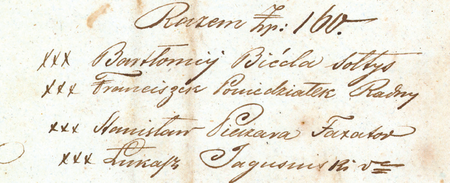 Razem Zp: 160.
xxx Bartłomiy Bieela Sołtys
xxx Franciszek Poniedziałek Radny
xxx Stanisław Pieczara Taxator
xxx Łukasz